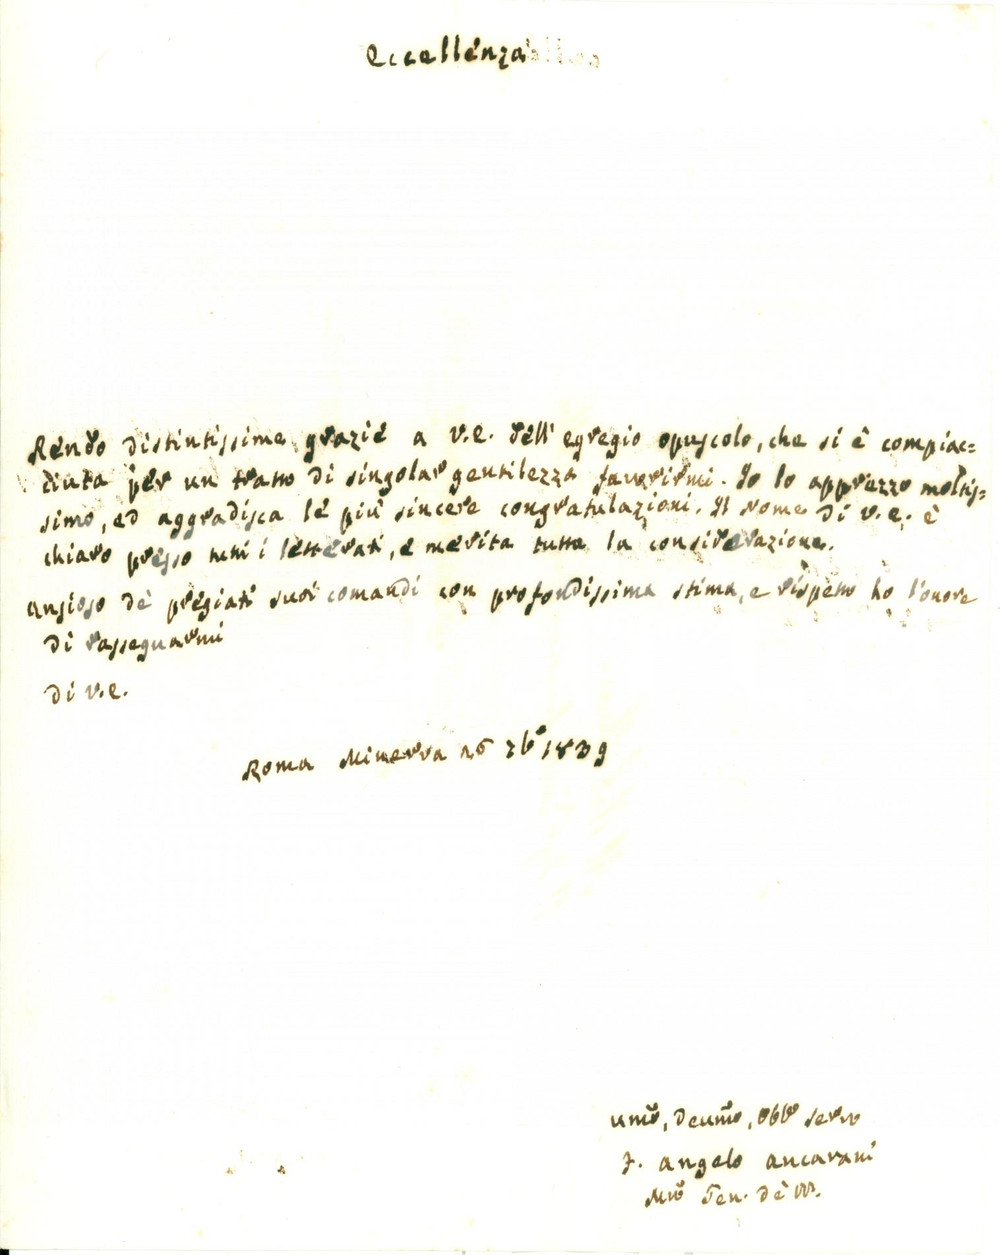 Eccellenza
Rendo distintissime grazie a V.E. dell'egregio opuscolo, che si è compiac=
ciuta per un tratto di singolar gentilezza favorirmi. Io lo apprezzo moltis=
simo, ed aggradisca le più sincere congratulazioni. Il nome di V.E. è
chiaro presso tutti i letterati, e merita tutta la considerazione.
Ansioso de' pregiati suoi comandi con profondissima stima, e rispetto ho l'onore
di rassegnarmi
di V.E.
Roma Minerva 16 7bre 1839
Umo, Devmo, Obbo servo
F. Angelo Ancarani
Mro Gen. de' PP.